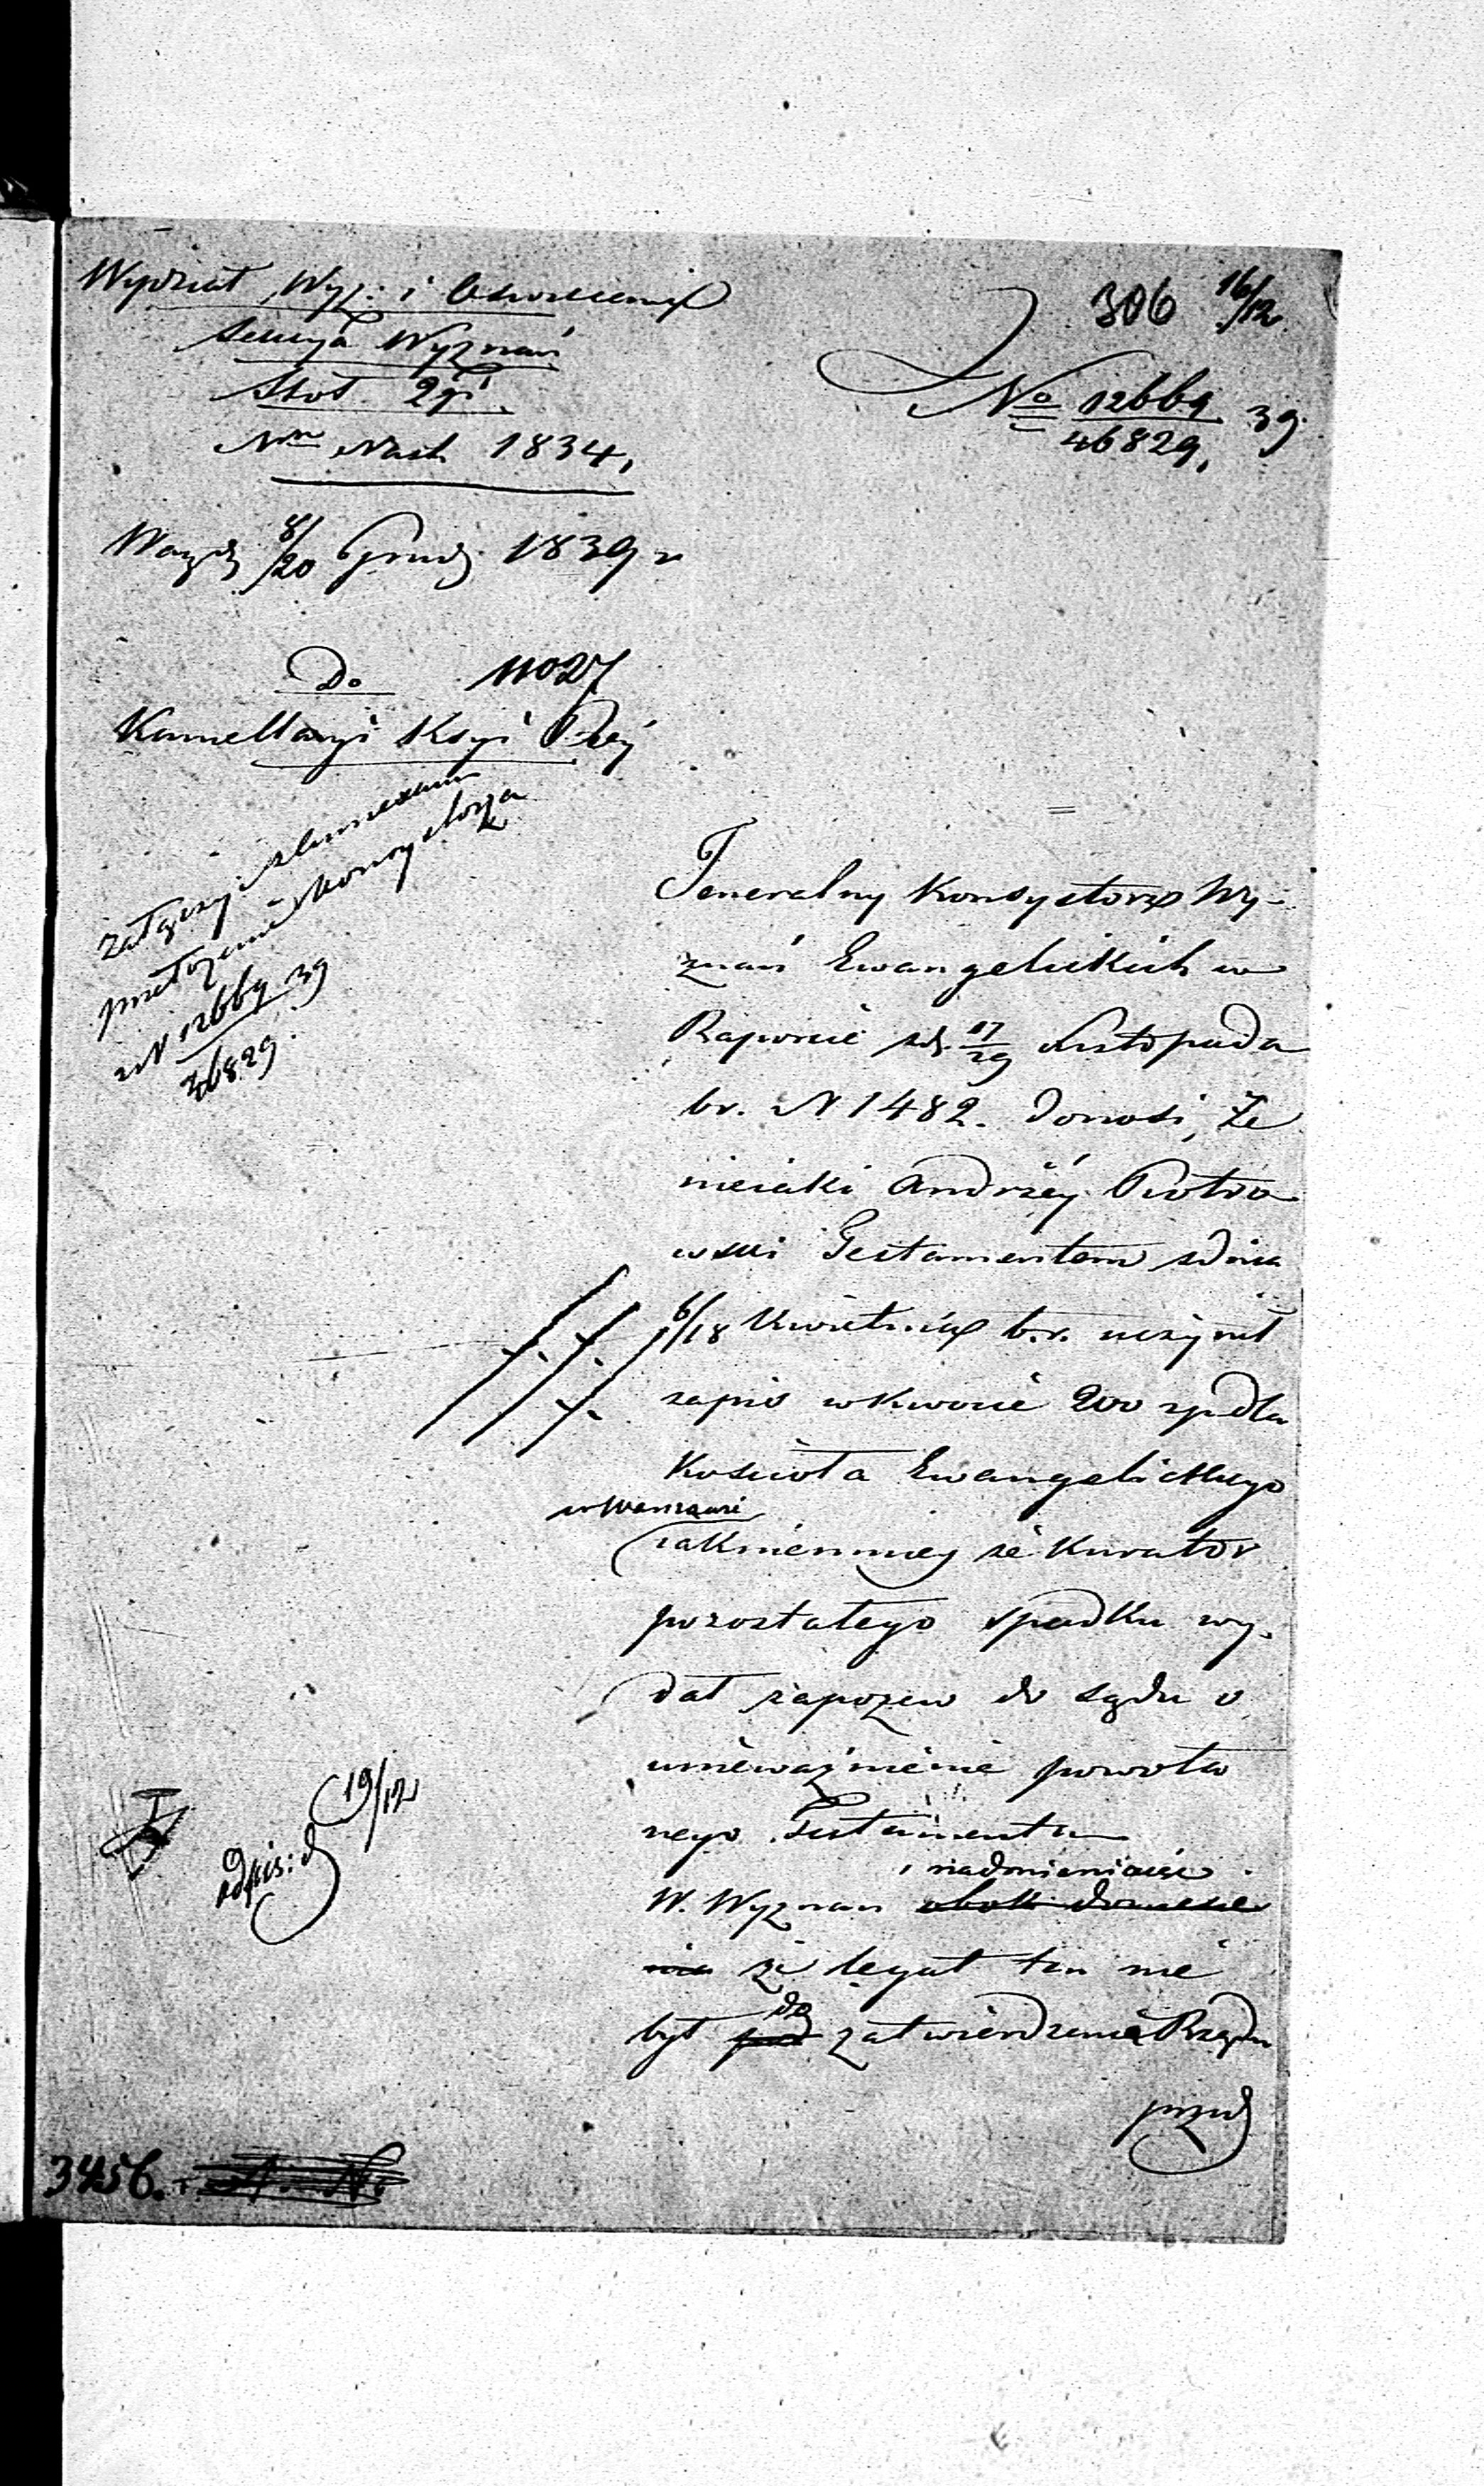 Wydział Wyz: i Oswiecenia
Sekcya Wyznań
Stoł 2gi
Nro Nast 1834,
306 16/12
No 12669/46829, 39.
8/20 Grud 1839 r
Do 11027
Kancellaryi Ksyi Rzej
Załączyć
przełożenie Konsystorza
N 12669/46829. 39
Jeneralny Konsystorz Wy-
znań Ewangelickich w
Raporcie zd. 17/29 Listopada
b.r. N 1482. donosi, że
niejaki Andrzéy Piotro
wski Testamentem zdnia
6/18 Kwietnia b.r. uczynił
zapis w kwocie 200 zp dla
Kościoła Ewangelickiego
w Warszawie
iakniemniey że Kurator
pozostałego spadku wy-
dał zapozew do sądu o
unieważnienie powoła
nego Testamentu
W. Wyznań
że legat ten nie
był do zatwierdzenia Rządu
przed
odpis: d 19/12
3456.